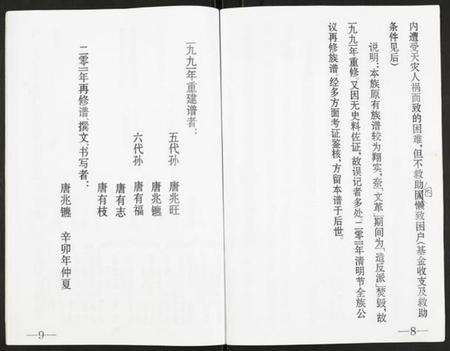 内遭受天灾人祸而致的困难，但不救助因懒致困户（基金收支及救助
条件见后）
说明：本族原有族谱较为翔实，奈“文革”期间为“造反派”焚毁，故
一九九一年重修，又因无史料佐证，故误记者多处，二零一一年清明节全族公
议再修族谱，经多方面考证鉴核，方留本谱于后世。
—8—
一九九一年重建谱者：
五代孙 唐兆旺
唐兆镳
六代孙 唐有福
唐有志
唐有枝
二零一一年再修谱，撰文、书写者：
唐兆镳 辛卯年仲夏
—9—